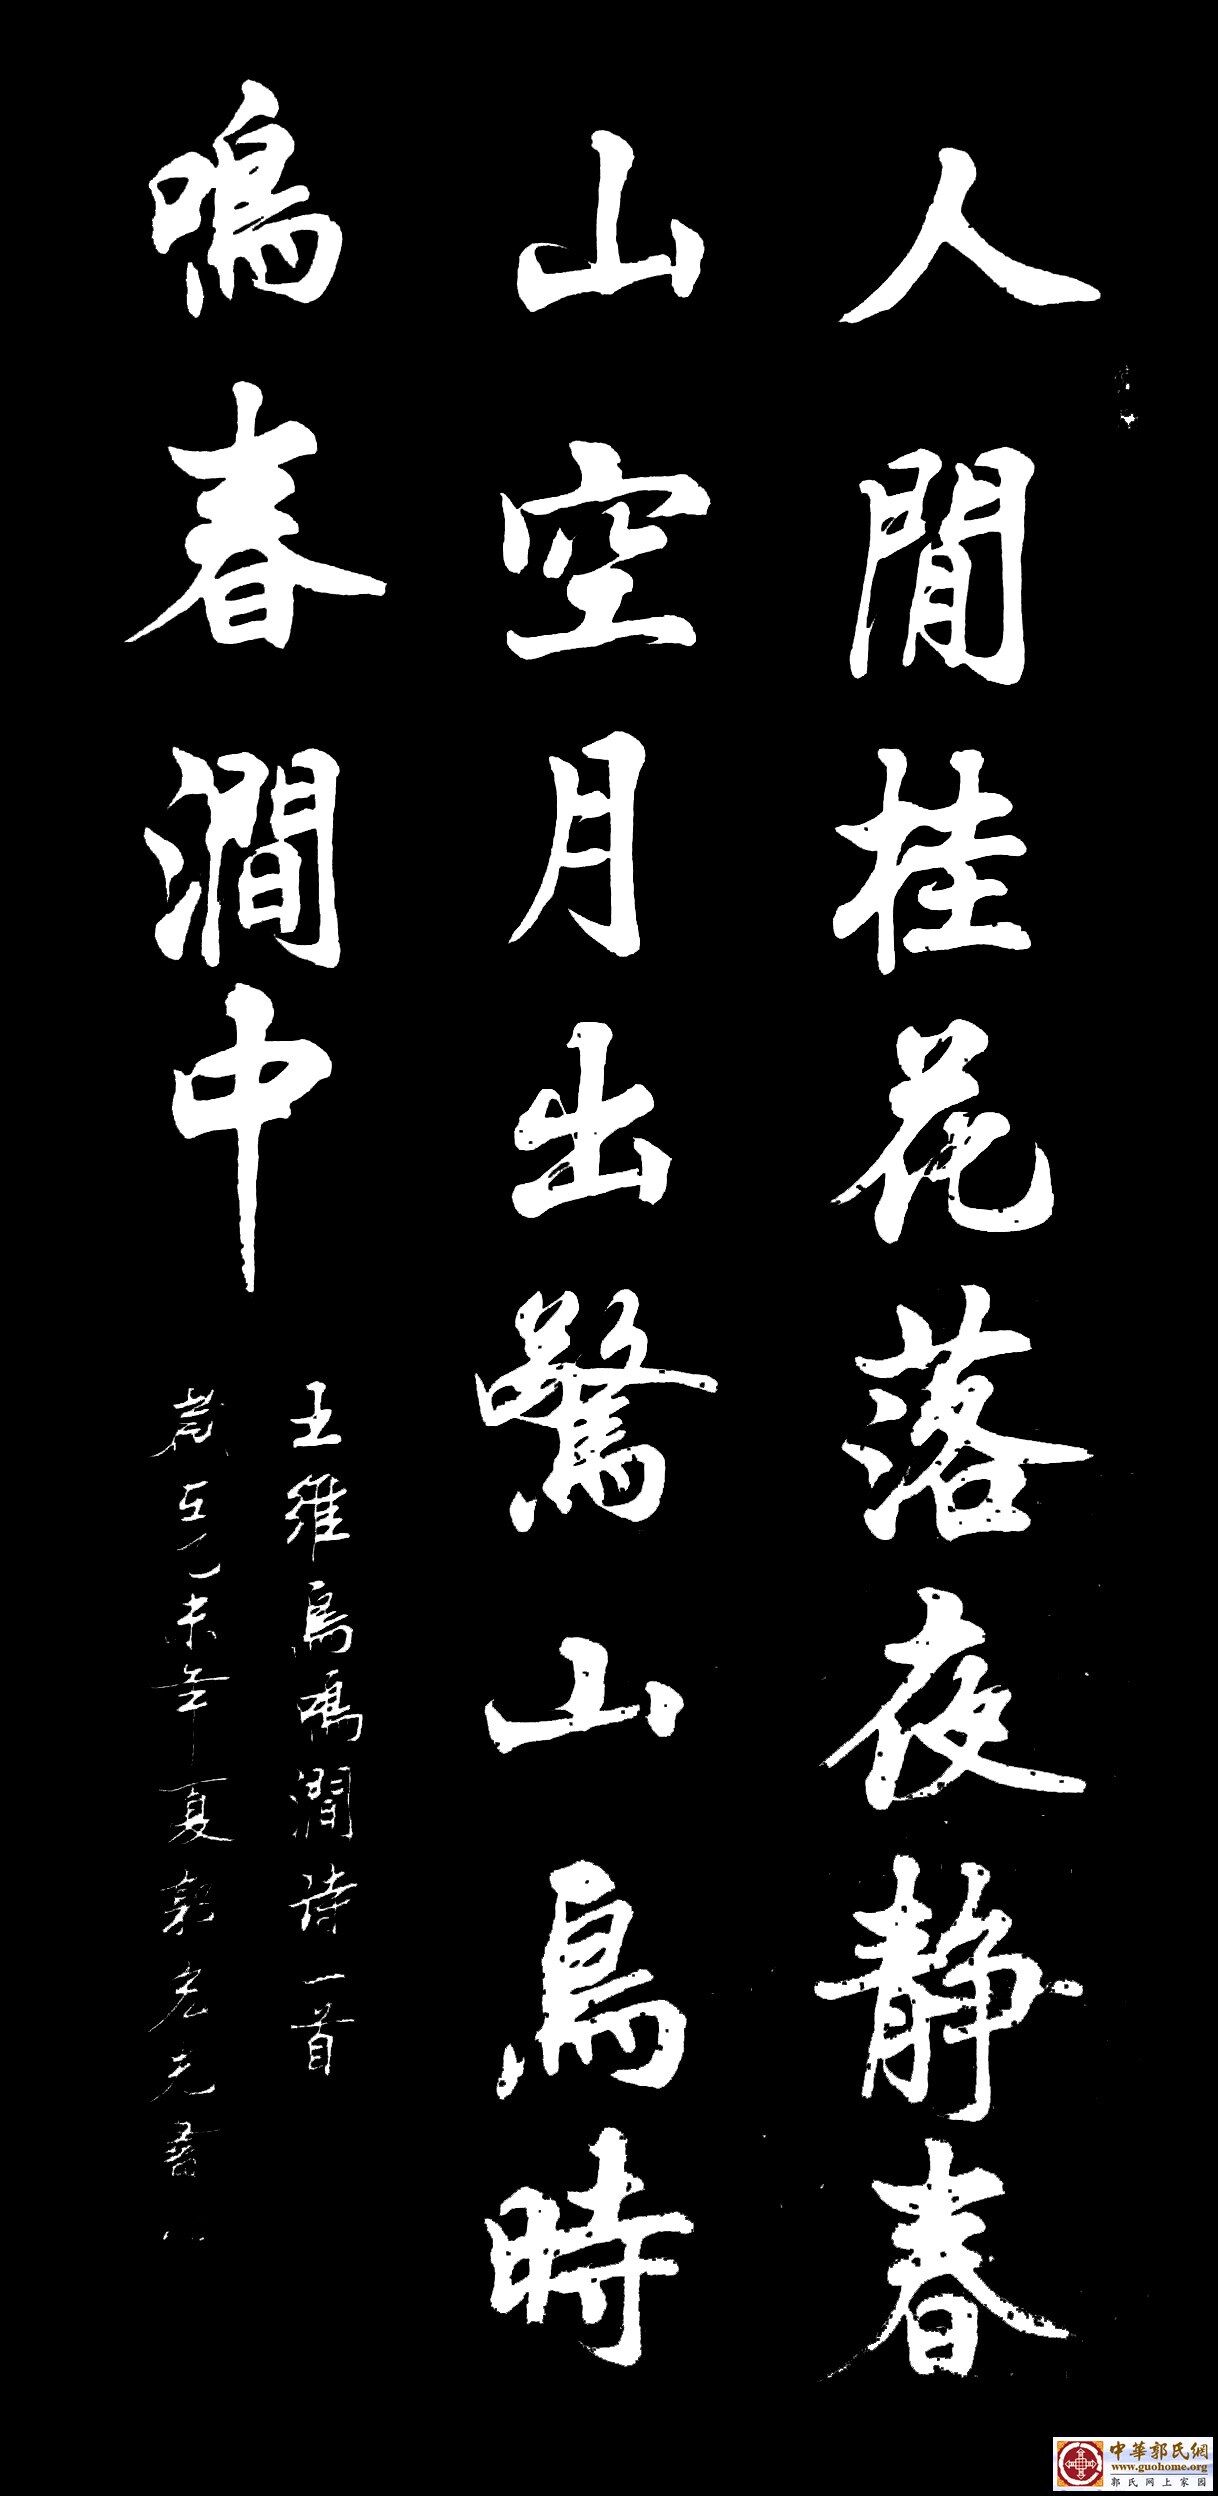 人閒桂花落夜靜春
山空月出驚山鳥時
鳴春澗中
王維鳥鳴澗詩一首
歲在己未年夏郭 光書
中華郭氏網
www.guohome.org
郭氏网上家园